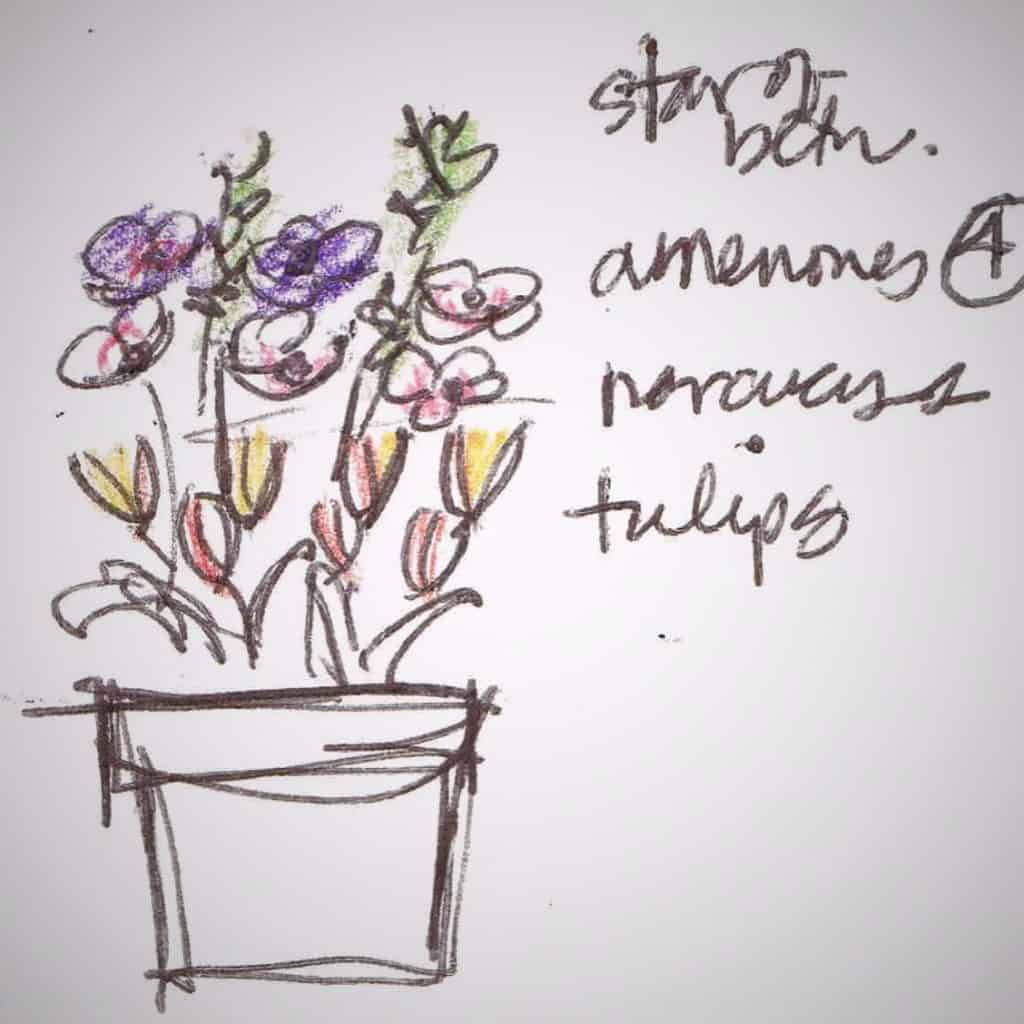 star of
beth.
amenones 4
narcissus
tulips